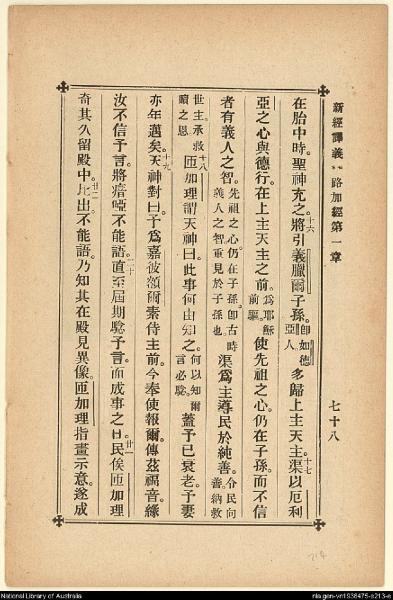 新經譯義 路加經第一章 七十八
在胎中時。聖神充之。十六將引義臘爾子孫。卽如德亞人。多歸上主天主。十七渠以厄利
亞之心與德行。在上主天主之前。爲耶穌前驅。使先祖之心。仍在子孫。而不信
者有義人之智。先祖之心仍在子孫卽古時義人之智重見於子孫也。渠爲主導民於純善。令民向善納救
世主承救贖之恩。十八匝加理謂天神曰。此事何由知之。何以知爾言必騐。蓋予已衰老。予妻
亦年邁矣。十九天神對曰。予爲嘉彼額爾。素侍主前。今奉使報爾。傳茲福音。緣
汝不信予言。將瘖啞不能語。二十直至屆期騐予言。而成事之日。廿一民俟匝加理
奇其久留殿中。廿二比出。不能語。乃知其在殿見異像。匝加理指畫示意。遂成
214
National Library of Australia
nla.gen-vn1936475-s213-e